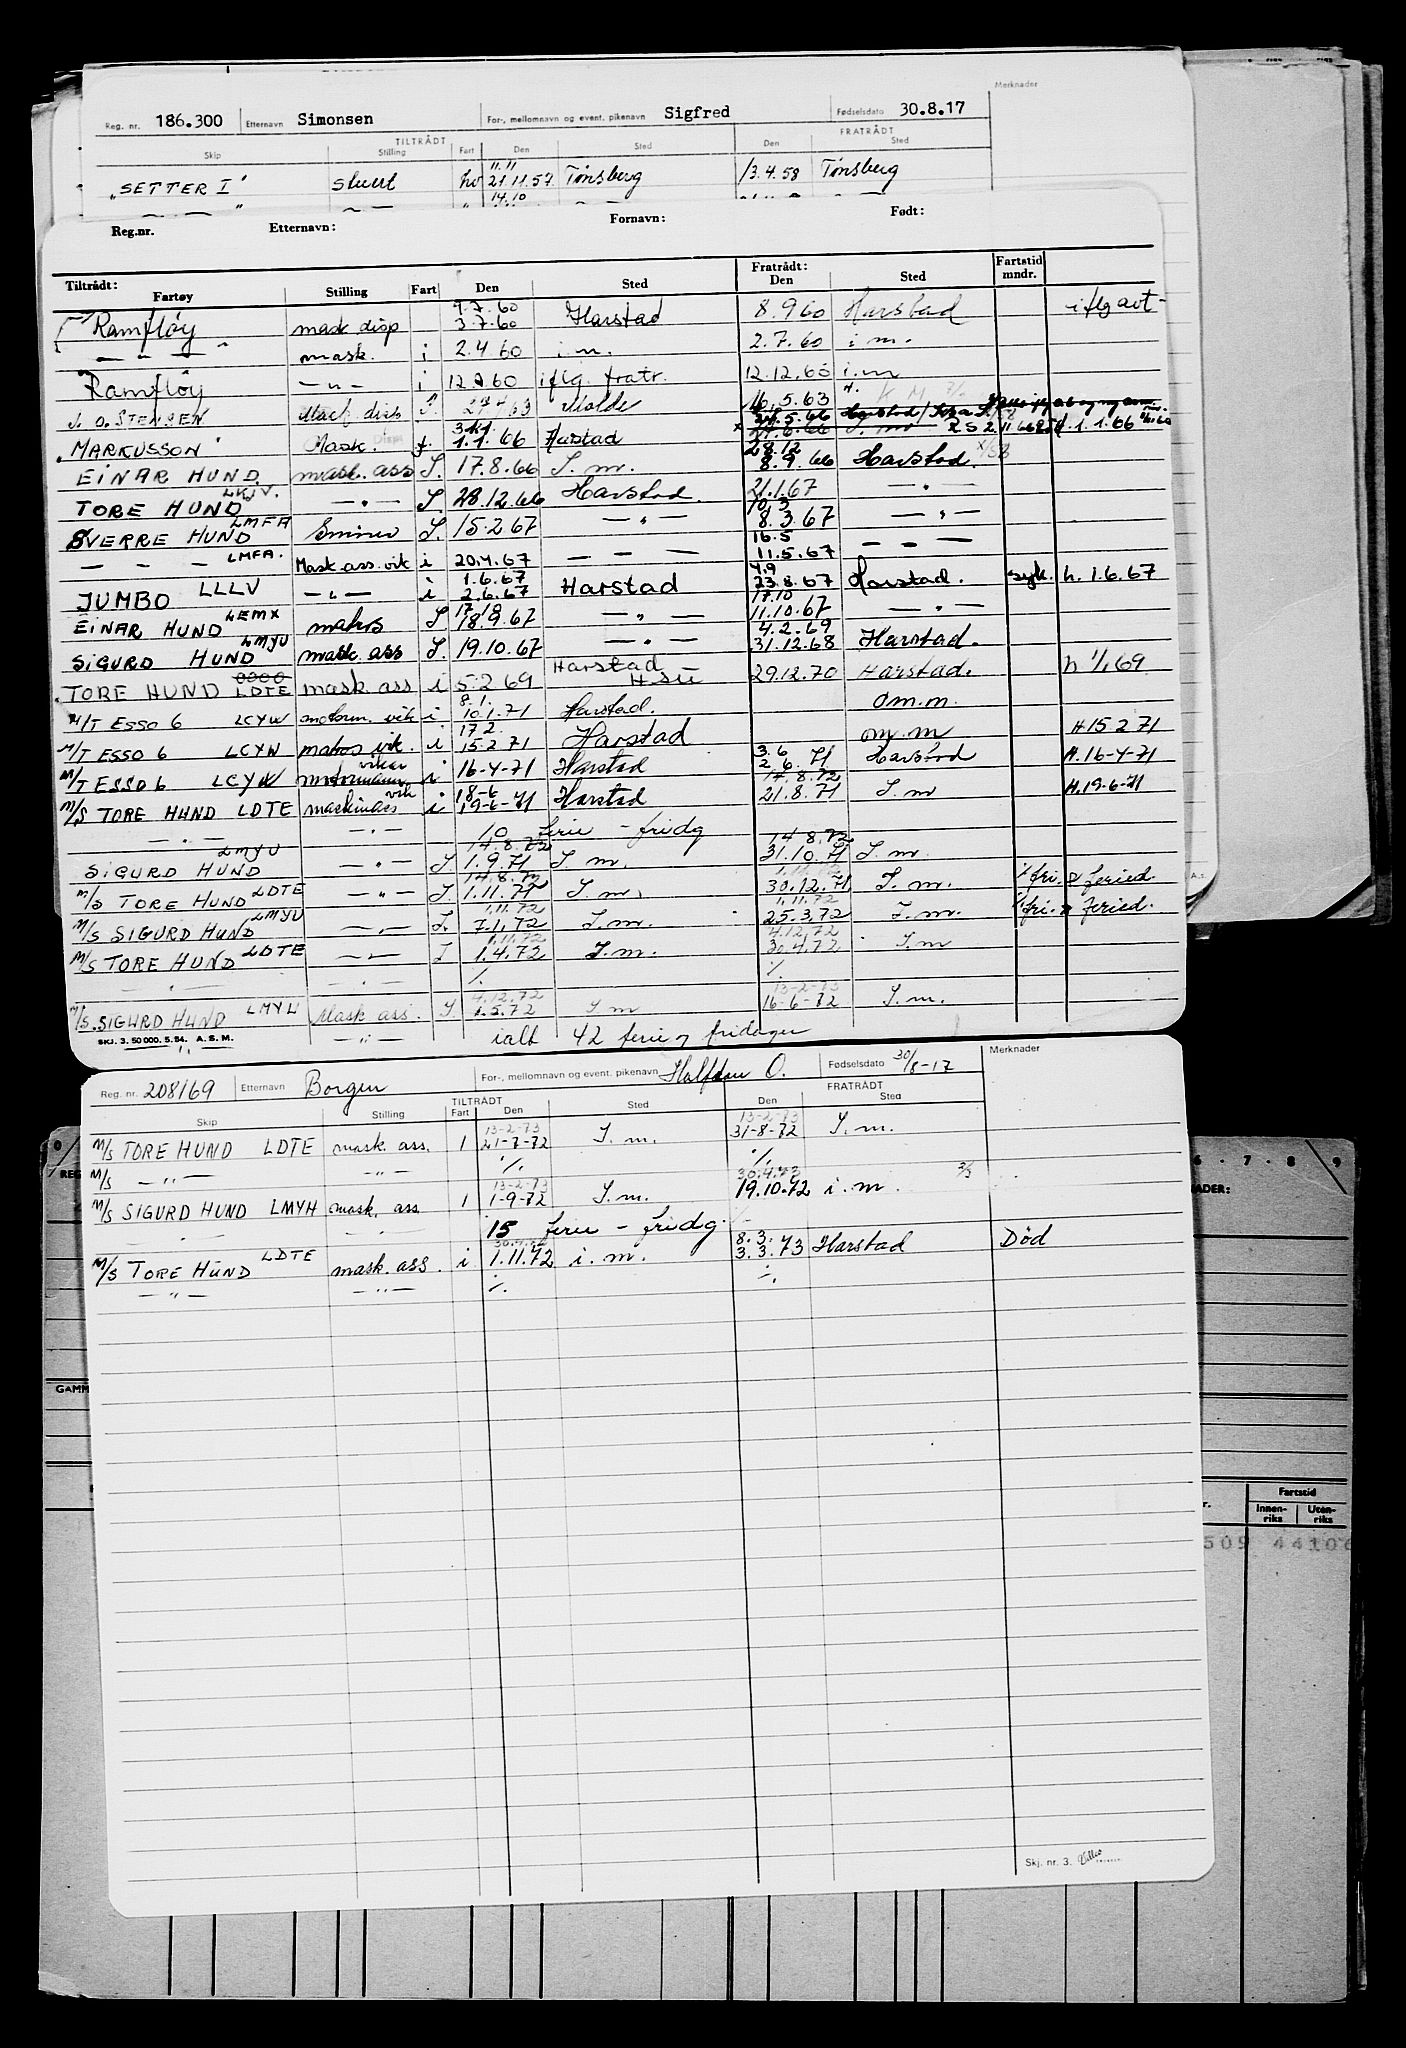 Merknader
Reg. nr. 186.300 Etternavn Simonsen For-, mellomnavn og event. pikenavn Sigfred Fødselsdato 30.8.17
TILTRÅDT FRATRÅDT
Skip Stilling Fart Den Sted Den Sted
11.11
"SETTER I" stuert hv 21.11.57 Tønsberg 13.4.58 Tønsberg
14.10
Reg.nr. Etternavn: Fornavn: Født:
Tiltrådt: Fratrådt: Fartstid
Fartøy Stilling Fart Den Sted Den Sted mndr.
9.7.60
Ramfløy mask disp 3.7.60 Harstad 8.9.60 Harstad iflg avt-
— " — mask. i 2.4.60 i m. 2.7.60 i m.
Ramfløy — " — i iflg. fratr. i.m
J. O. STENSEN Molde 16.5.63
MARKUSSON Mask. 1.1.66 Harstad
28.12
EINAR HUND mask. ass S. 17.8.66 I. m. 8.9.66 Harstad.
TORE HUND — " — 28.12.66 Harstad. 21.1.67 — " —
10.3
SVERRE HUND LMFA 15.2.67 — " — 8.3.67 — " —
16.5
— — — LMFA. Mask ass. vik i 20.4.67 — — — 11.5.67 — — —
1.6.67 4.9
JUMBO LLLV — " — i 2.6.67 Harstad 23.8.67 Harstad. syk. h. 1.6.67
17.10
EINAR HUND LEMX 18.9.67 — " — 11.10.67 — " —
4.2.69
SIGURD HUND LMYU mask. ass 19.10.67 — " — 31.12.68 Harstad.
TORE HUND LDTE mask. ass i 5.2 69 Harstad 29.12.70 Harstad. h 1/1 69
8.1.
M/T ESSO 6 LCYW motorm. vik i 10.1.71 Harstad. om.m.
17.2.
M/T ESSO 6 LCYW matros vik. i 15.2.71 Harstad om.m H 15 2 71
3.6
M/T ESSO 6 LCYW motormann vikar i 16-4-71 Harstad 2.6.71 Harstad H. 16-4-71
18-6 17.8.72
M/S TORE HUND LDTE maskinass vik i 19-6-71 Harstad 21.8.71 I. m H. 19-6-71
— " — — " — 10 ferie - fridg
14.8.72 14 8.72
SIGURD HUND LMYU — " — I. 1.9.71 I m. 31.10.71 I. m.
14.8.72
M/S TORE HUND LDTE — " — I. 1.11.71 I. m. 30.12.71 I. m. fri. feried.
1.11.72 1.11.72
M/S SIGURD HUND LMYU — " — I. 7.1.72 I. m. 25.3.72 I. m. fri. feried.
1.11.72 4.12.72
M/S TORE HUND LDTE — " — I 1.4.72 I. m. 30.4.72 I. m
— " — — " — ./. ./.
4.12.72 13-2-73
M/S SIGURD HUND Mask ass. I. 1.5.72 I m 16-6-72 I. m.
SKJ. 3. 50 000. 5. 54. A. S. M. — " — ialt 42 ferie og fridager
Merknader
Reg. nr. 208169 Etternavn Borgen For-, mellomnavn og event. pikenavn Halfdan O. Fødselsdato 30/8-17
TILTRÅDT FRATRÅDT
Skip Stilling Fart Den Sted Den Sted
13-2-73 13-2-73
M/S TORE HUND LDTE mask. ass. 1 21-7-72 I. m. 31-8-72 I. m.
M/S — " — — " — ./. ./.
13-2-73 30.4.73
M/S SIGURD HUND LMYH mask. ass 1 1-9-72 I. m. 19.10.72 i. m.
15 ferie - fridg.
8.3.
M/S TORE HUND LDTE mask. ass. i 1.11.72 i. m. 3.3.73 Harstad Død
— " — — " — ./. ./.
Fartstid
Innen- Uten-
riks riks
509 44106
Skj. nr. 3.